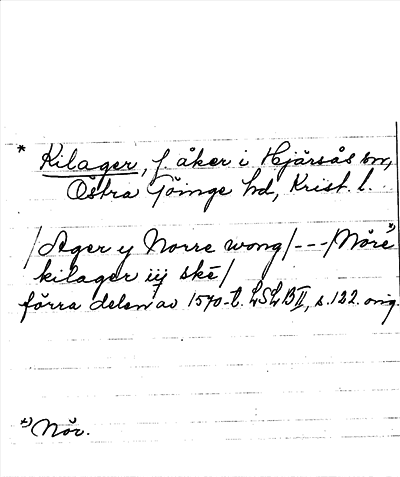 * Kilager, f. åker i Hjärsås sn,
Östra Göinge hd, Krist. l.
/Ager y Norre wong/---/Nörë x)
kilager iij ske/
förra delen av 1570-t. LSLB II, s. 122. orig.
x) Nör.